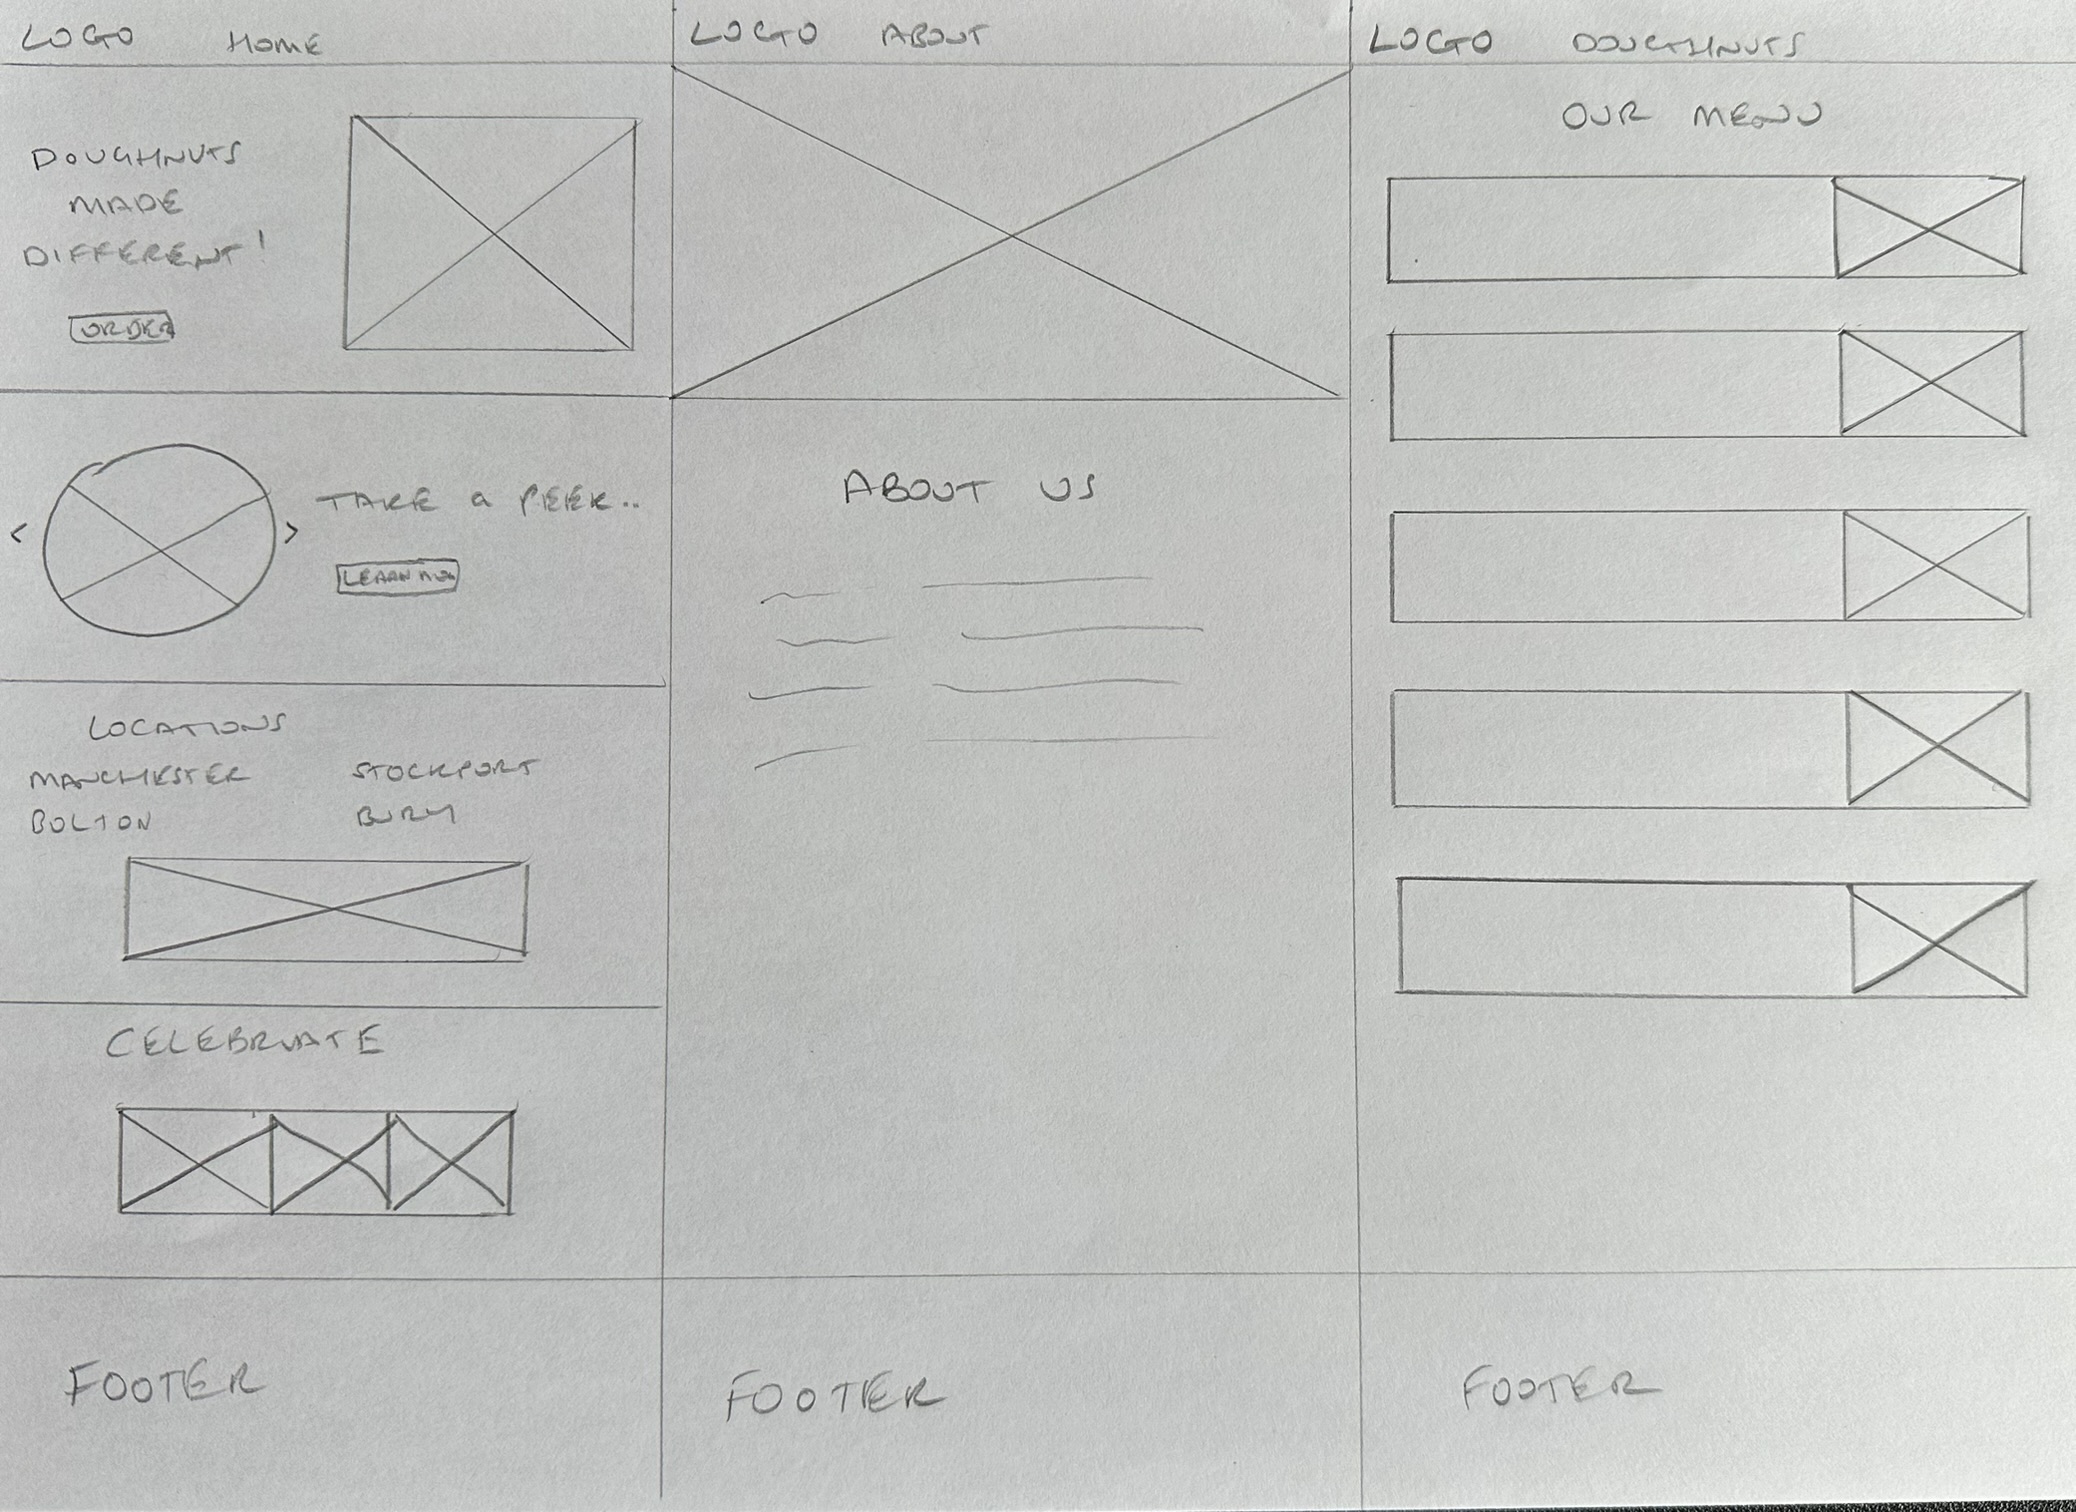 LOGO HOME
DOUGHNUTS
MADE
DIFFERENT!
ORDER
< >
TAKE a PEEK..
LEARN
LOCATIONS
MANCHESTER STOCKPORT
BOLTON BURY
CELEBRATE
FOOTER
LOGO ABOUT
ABOUT US
FOOTER
LOGO DOUGHNUTS
OUR MENU
FOOTER